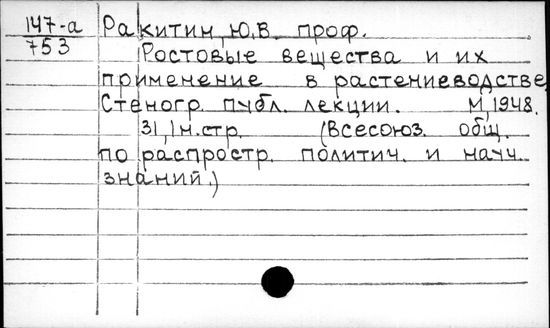 147-а
753
Ракитин, Ю.В. проф.
Ростовые вещества и их
применение в растениеводстве,
Стеногр. публ. лекции. М, 1948.
31, 1 н.стр. (Всесоюз. общ.
по распростр. политич. и науч.
знаний.)